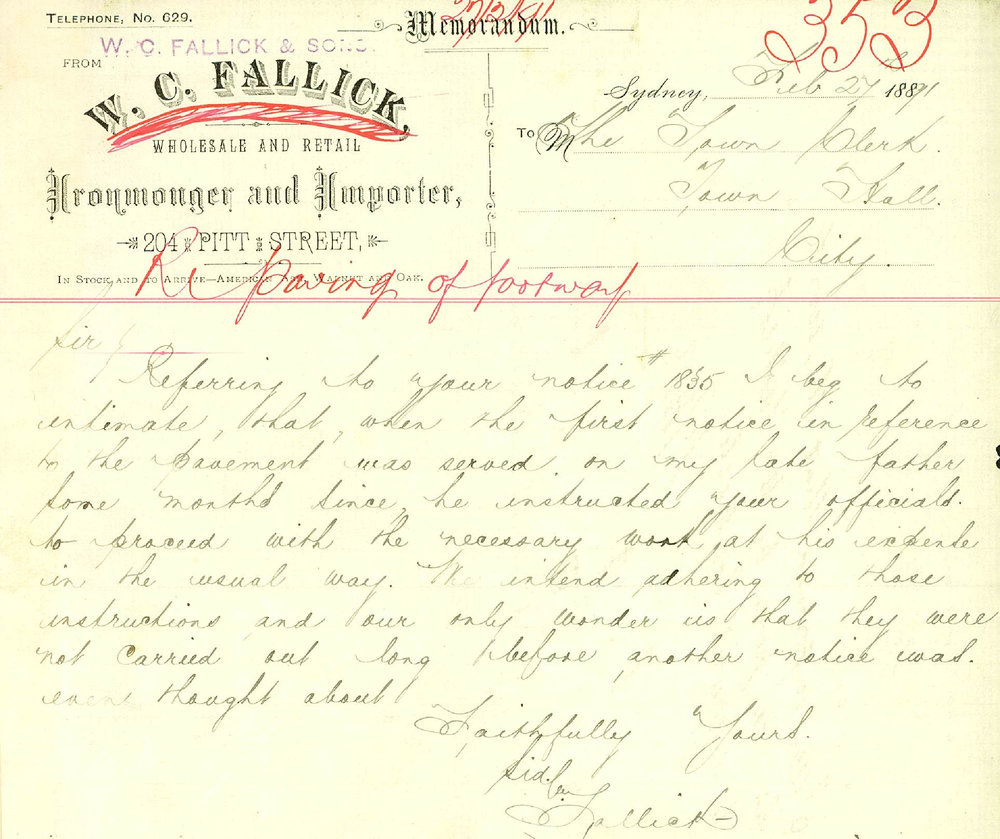 TELEPHONE, NO. 629.
W. C. FALLICK & SONS.
FROM
W. C. FALLICK,
WHOLESALE AND RETAIL
Ironmonger and Importer,
204 PITT STREET,
IN STOCK AND TO ARRIVE—AMERICAN ASH, WALNUT AND OAK.
Memorandum.
353
Sydney, Feb 27th 1891
To The Town Clerk.
Town Hall.
City.
Re paving of footway
Sir
Referring to your notice # 1835 I beg to
intimate, that, when the first notice in reference
to the pavement was served on my late father
some months since, he instructed your officials.
to proceed with the necessary work at his expense
in the usual way. We intend adhering to those
instructions and our only wonder is that they were
not carried out long before another notice was.
even thought about
Faithfully Yours.
Sid.
Fallick